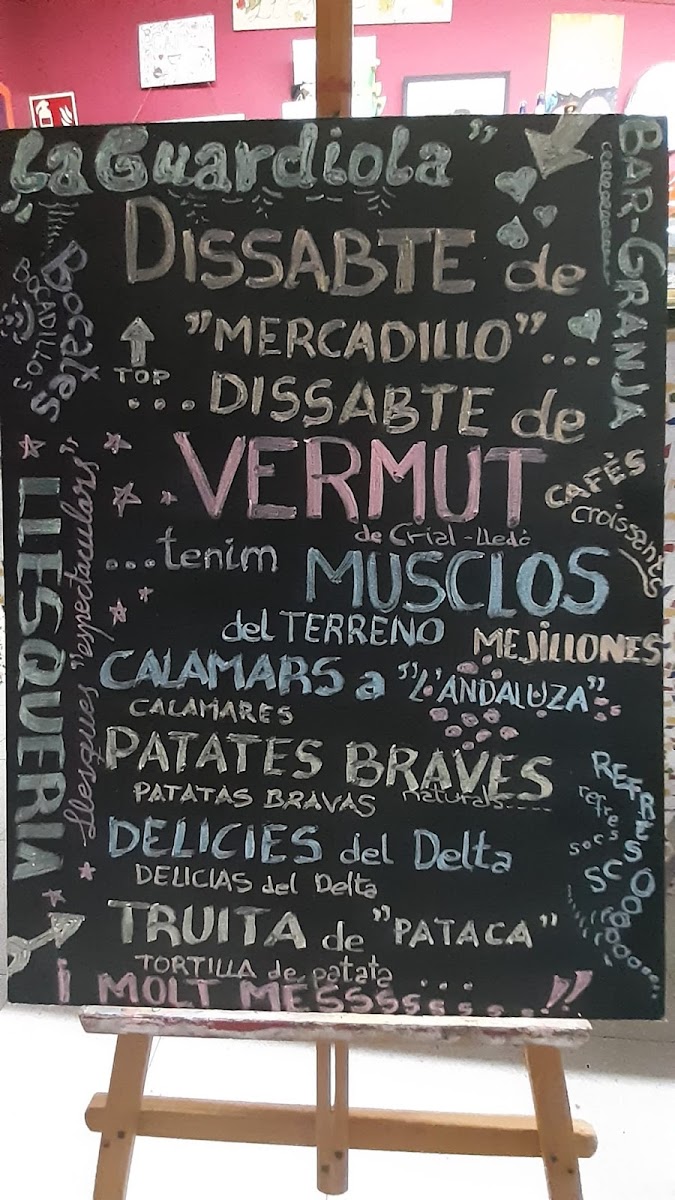 "La Guardiola"
BAR-GRANJA
DISSABTE de
"MERCADILLO"...
TOP
...DISSABTE de
VERMUT
de Crial-Lledó
Bocates
BOCADILLOS
CAFÈS
croissants
...tenim MUSCLOS
del TERRENO
MEJILLONES
LLESQUERIA
Llesques "espectaculars"
CALAMARS a "L'ANDALUZA"
CALAMARES
PATATES BRAVES
PATATAS BRAVAS naturals....
DELICIES del Delta
DELICIAS del Delta
REFRESCOooo
refrescs
TRUITA de "PATACA"
TORTILLA de patata
i MOLT MESSSSsss...!!